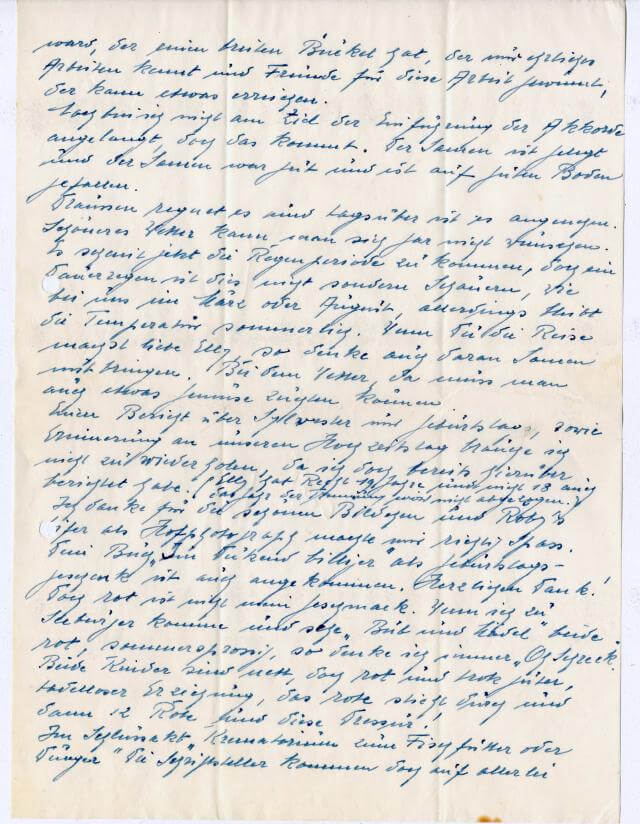 ward, der einen breiten Buckel hat, der nur ehrliches
Arbeiten kennt und Freunde für diese Arbeit gewinnt,
der kann etwas erreichen.
Noch bin ich nicht am Ziel der Einführung der Akkorde
angelangt, doch das kommt. Der Samen ist gelegt
und der Samen war gut und ist auf guten Boden
gefallen.
Draussen regnet es und tagsüber ist es angenehm.
Schöneres Wetter kann man sich gar nicht wünschen.
Es scheint jetzt die Regenperiode zu kommen, doch ein
Dauerregen ist dies nicht sondern Schauern, wie
bei uns im März oder August, allerdings bleibt
die Temperatur sommerlich. Wenn Du die Reise
machst liebe Elly, so denke auch daran Samen
mitbringen. Bei dem Wetter, da muss man
auch etwas Gemüse züchten können.
Einen Bericht über Sylvester und Geburtstag, sowie
Erinnerung an unseren Hochzeitstag brauche ich
nicht zu wiederholen, da ich doch bereits hierüber
berichtet habe. (Elly hat Recht 19 Jahre und nicht 18 auch
das Jahr der Trennung wird nicht abgezogen.)
Ich danke für die schönen Bildchen und Roby's
als Hofphotograph machte mir richtig Spass.
Dein Buch "Im Dutzend billiger" als Geburtstags-
geschenk ist auch angekommen. Herzlichen Dank!
Doch rot ist nicht mein Geschmack. Wenn ich zu
komme und sehe "Bub und Mädel" beide
rot, sommersprossig, so denke ich immer "Oh Schreck".
Beide Kinder sind nett, doch rot und trotz guter,
tadelloser Erziehung, das rote sticht durch und
dann 12 Rote und diese Dressur!
Im Schlussakt Krematorium zum Fischfutter oder
Dünger "die Schriftsteller kommen doch auf allerlei